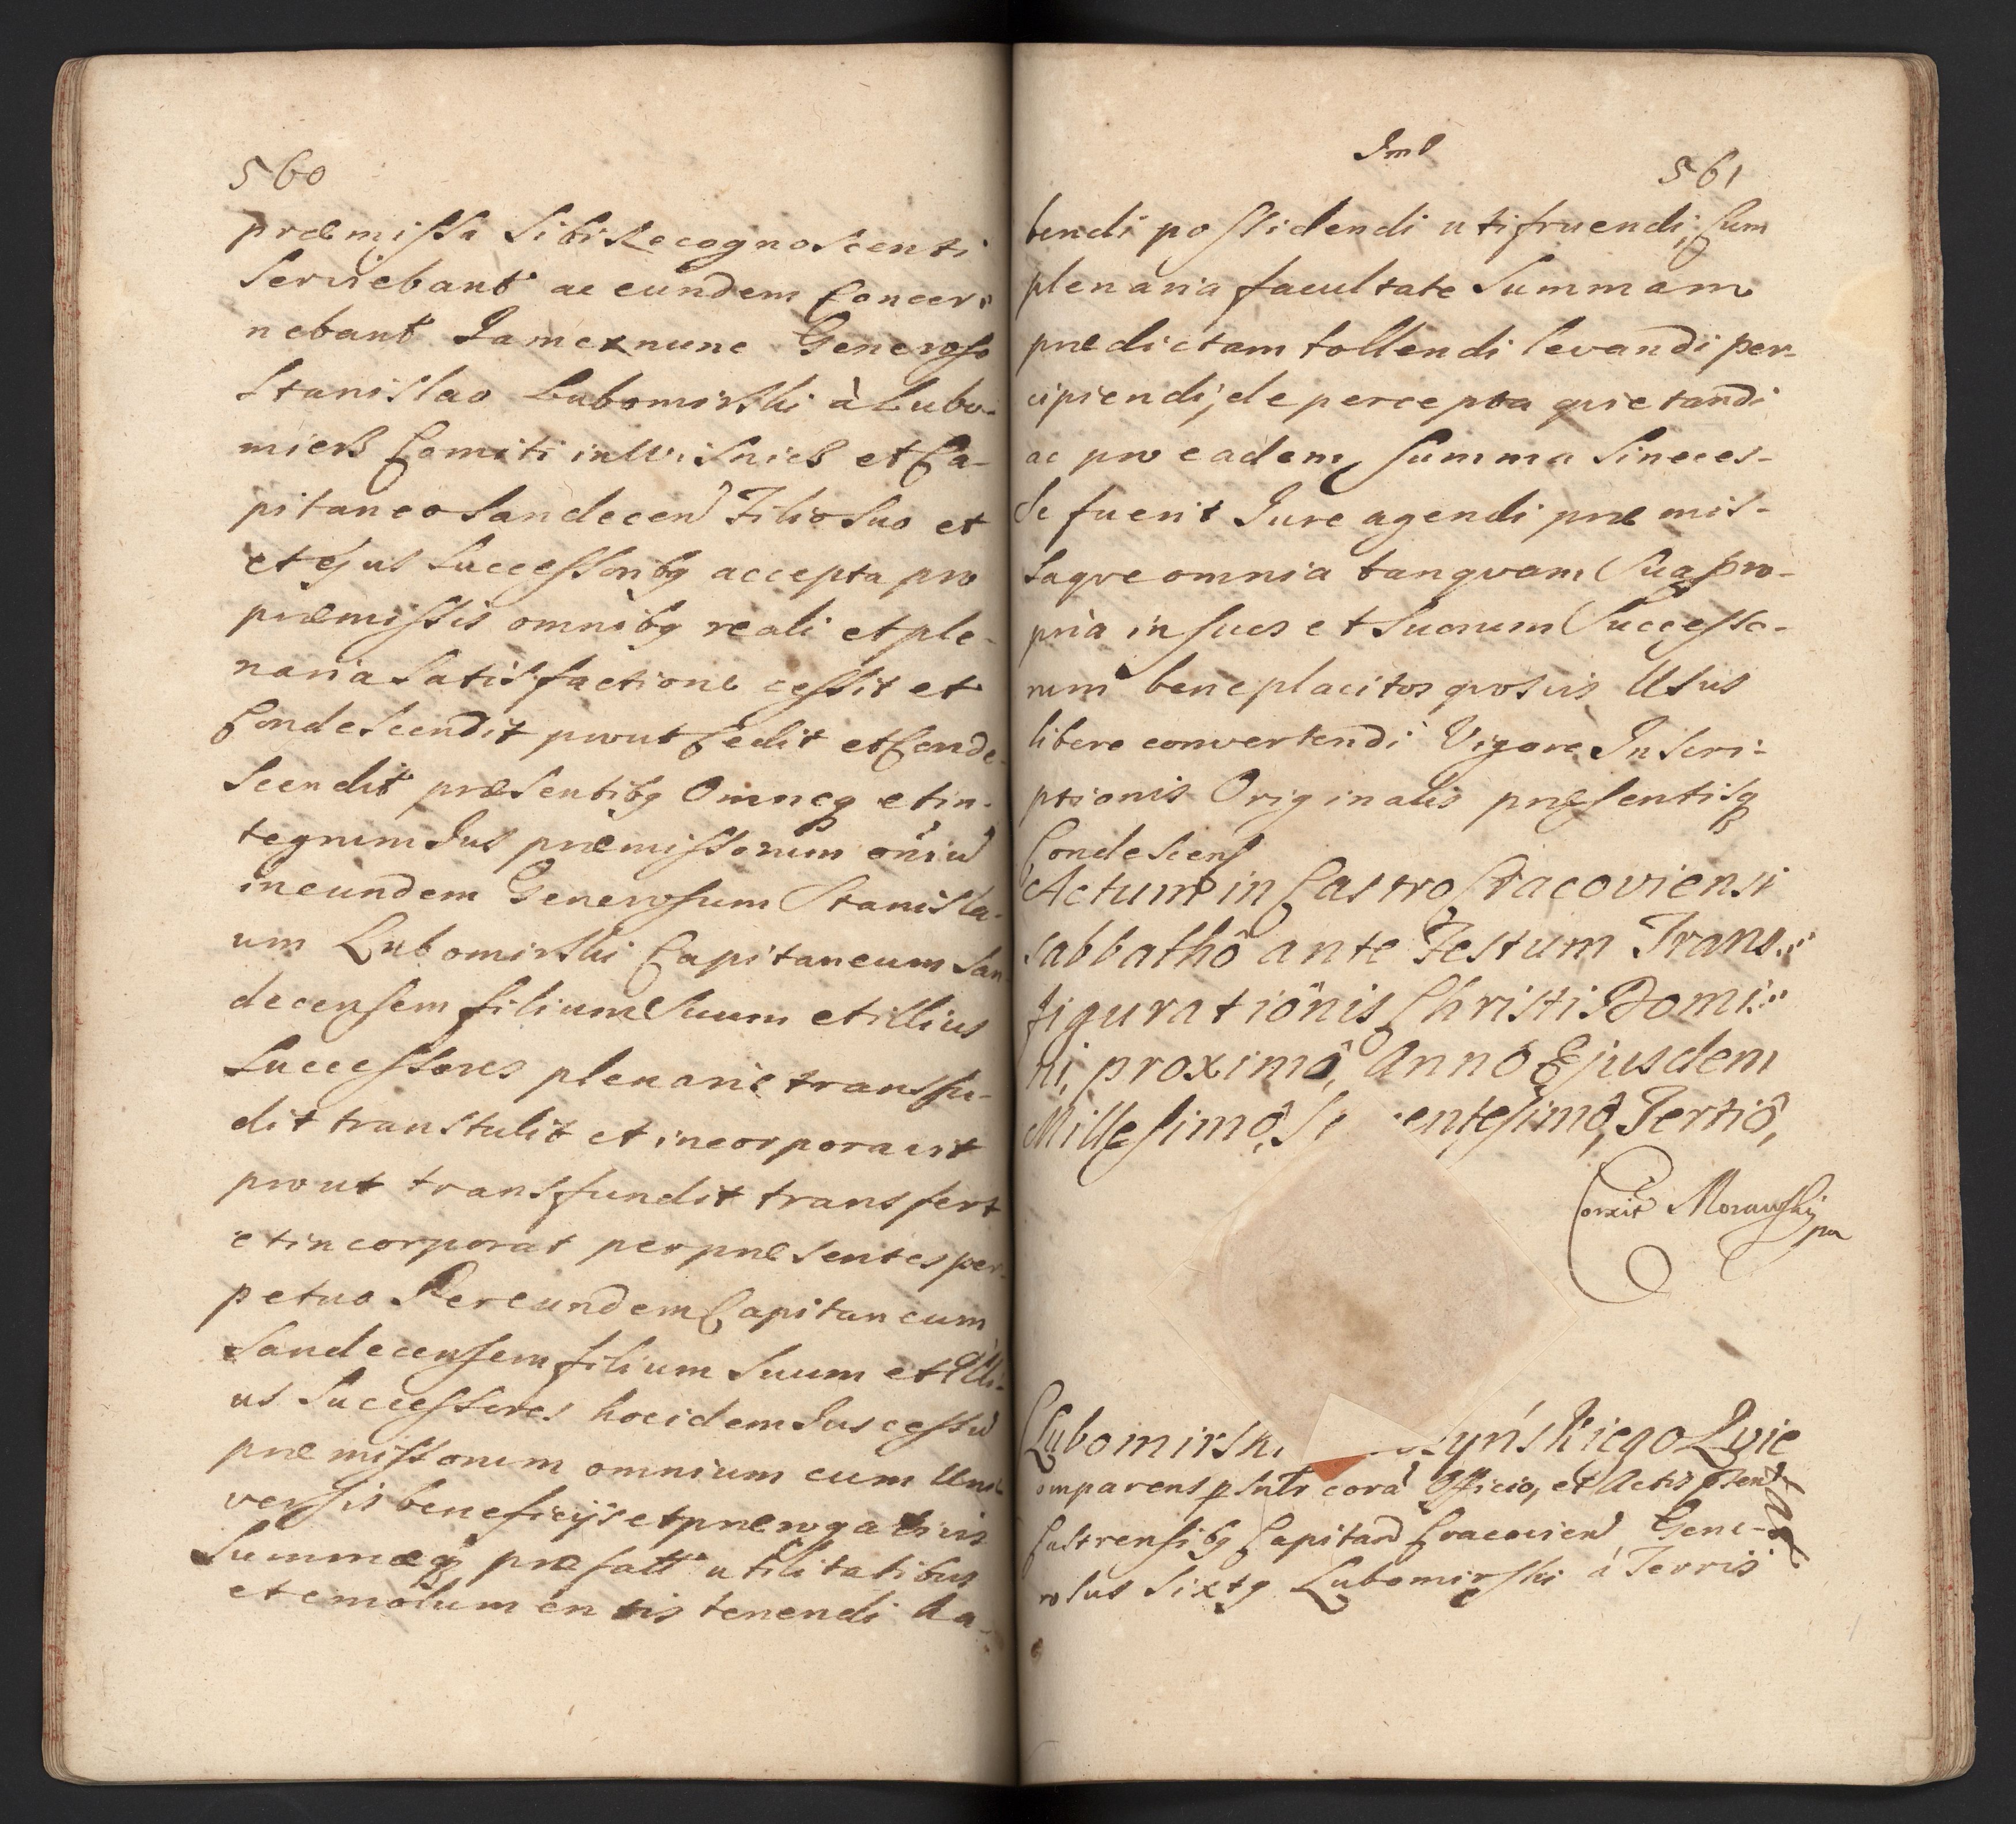 560
præmissa Sibi Recognoscenti
Serviebant ac eundem Concer-
nebant Jamexnunc Generoso
Stanislao Lubomirski à Lubo-
mierz Comiti in Wisnicz et Ca-
pitaneo Sandecen Filio Suo et
et ejus Successoribq accepta pro
præmissis omnibq reali et ple-
naria Satisfactione cessit et
Condescendit prout Cedit et Conde-
scendit præsentibq Omneq et in-
tegrum Jus præmissorum oniu
in eundem Generosum Stanisla-
um Lubomirski Capitaneum San
decensem filium Suum et illius
Successores plenarie transfu-
dit transtulit et incorporavit
prout transfundit transfert
et incorporat per præsentes per-
petuo Per eundem Capitaneum
Sandecensem filium Suum et Illi-
us Successores hoc idem Jus cessu
præmissorum omnium cum Uni-
versis beneficijs et prærogativis
Summæq præfatt utilitatibus
et emolumentis tenendi ha-
561
bendi possidendi utifruendi, Cum
plenaria facultate Summam
prædictam tollendi levandi per-
cipiendi, de percepta quietandi
ac pro eadem Summa Si neces-
se fuerit Jure agendi præmis-
saque omnia tanquam Sua pro-
pria in suos et Suorum Successo-
rum beneplacitos quosvis Usus
libere convertendi Vigore Inscri-
ptionis Originalis præsentisq
Condescens
Actum in Castro Cracoviensi
sabbathô ante Festum Trans-
figurationis Christi Domi-
ni, proximô, Annô Ejusdem
Millesimô, S entesimô, Tertiô,
Correxit Morawski
Lubomirski yńskiego Kwie
tat
omparens psnlr corã Officio, et Actis Psent
Castrensibq Capitan Cracovien Gene-
rosus Sixtq Lubomirski à Terris